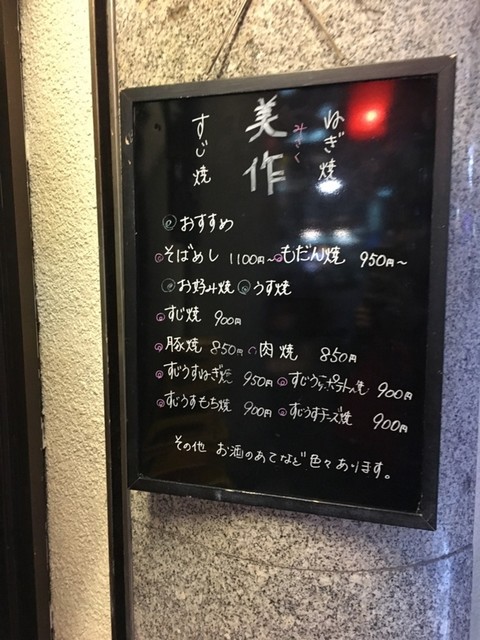 ねぎ焼
美作
みさく
すじ焼
おすすめ
そばめし 1100円〜 もだん焼 950円〜
お好み焼 うす焼
すじ焼 900円
豚焼 850円 肉焼 850円
すじうすねぎ焼 950円 すじうすポテト焼 900円
すじうすもち焼 900円 すじうすチーズ焼 900円
その他 お酒のあてなど色々あります。